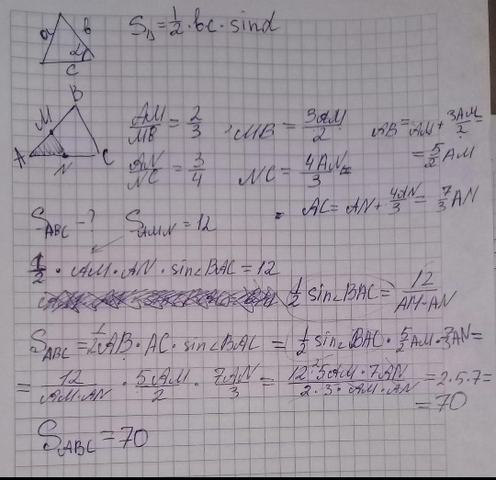 a b α c
S△ = 1/2 · bc · sinα
B M A N C
AM/MB = 2/3, MB = 3AM/2 AB = AM + 3AM/2 =
= 5/2 AM
AN/NC = 3/4 NC = 4AN/3
AC = AN + 4AN/3 = 7/3 AN
S_ABC - ? S_AMN = 12
1/2 · AM · AN · sin∠BAC = 12
1/2 sin∠BAC = 12/AM·AN
S_ABC = 1/2 AB · AC · sin∠BAC = 1/2 sin∠BAC · 5/2 AM · 7/3 AN =
= 12/AM·AN · 5AM/2 · 7AN/3 = 12·5AM·7AN/2·3·AM·AN = 2·5·7 =
= 70
S_ABC = 70